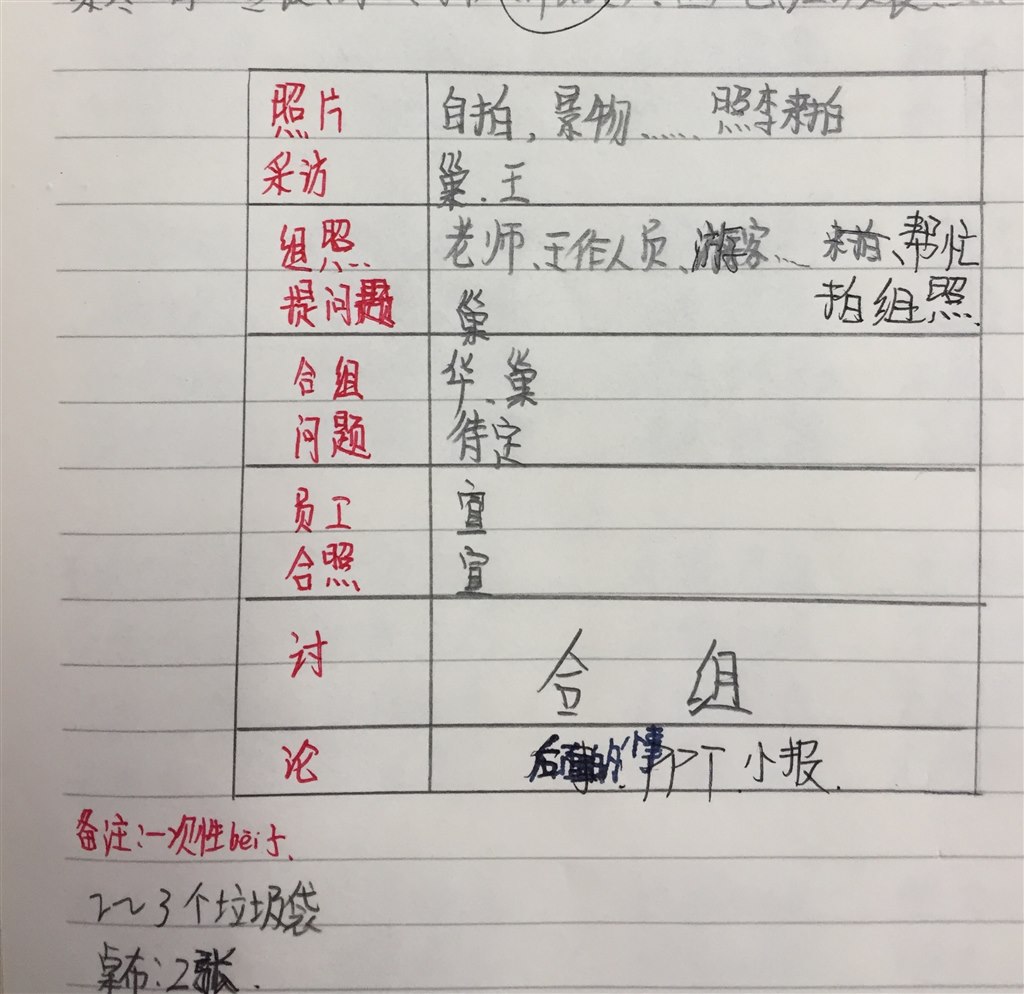 照片 自拍,景物…… 照李来拍
采访 巢、王
组照 老师、工作人员、游客…… 来拍、帮忙
提问题 巢 拍组照.
合组 华、巢
问题 待定
员工 宣
合照 宣
讨 合 组
论 后面的事 PPT 小报.
备注:一次性bēi子、
2~3个垃圾袋
桌布:2张.